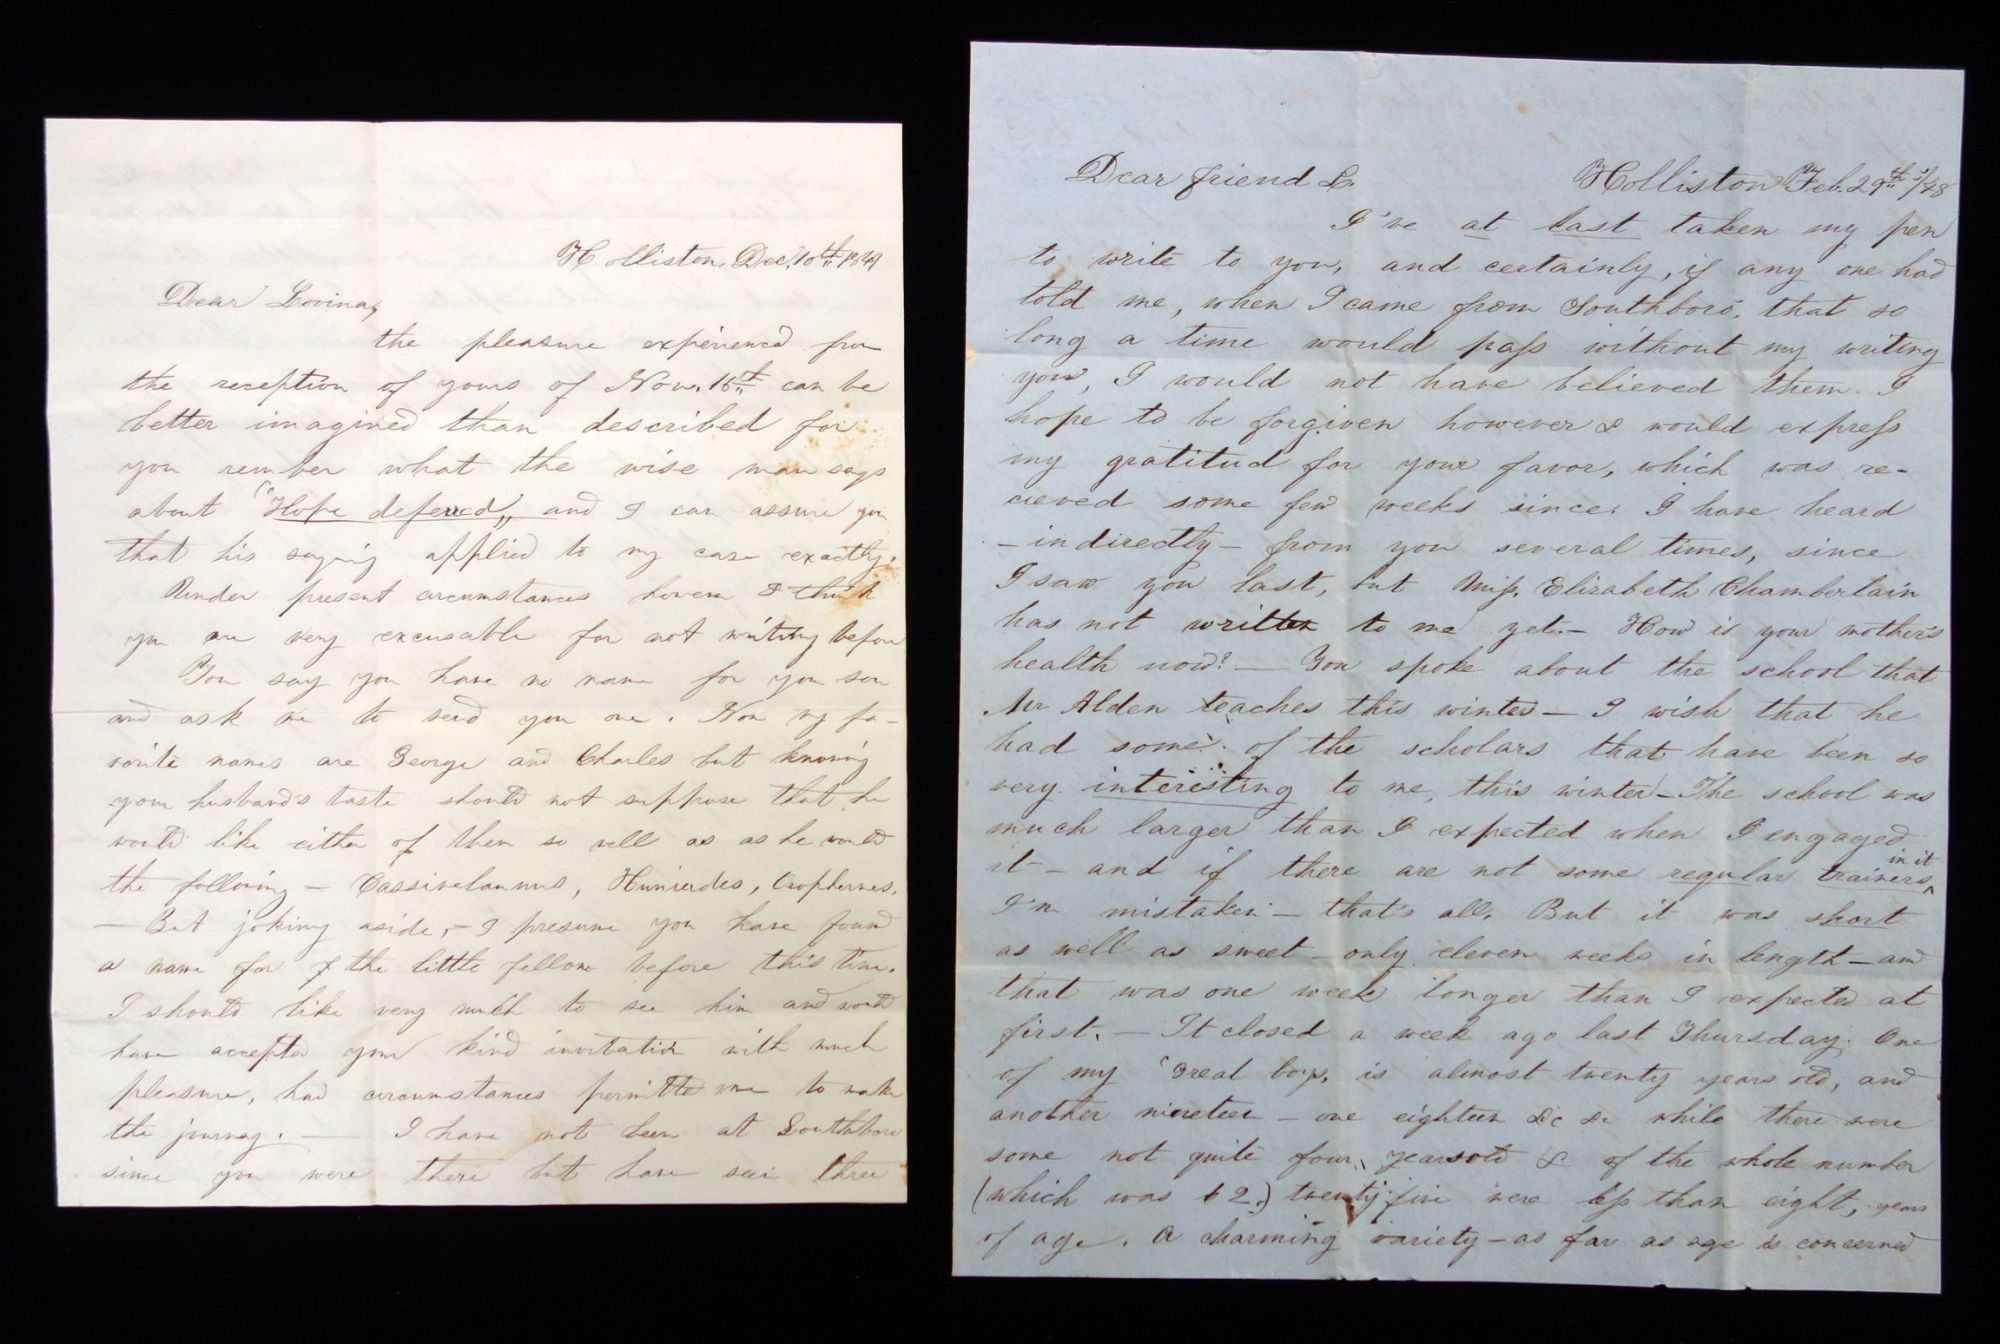 Holliston, Dec. 10th 1849
Dear Lovina,
the pleasure experienced from
the reception of yours of Nov. 16th can be
better imagined than described for
you rember what the wise man says
about "Hope deferred,, and I can assure you
that his saying applied to my case exactly.
Under present circumstances however I think
you are very excusable for not writing before
You say you have no name for you son
and ask me to send you one. Now my fa-
vorite names are George and Charles but knowing
your husband's taste should not suppose that he
would like either of them so well as as he would
the following — Cassivelaunus, Huniades,
— But joking aside, — I presume you have found
a name for the little fellow before this time.
I should like very much to see him and would
have accepted your kind invitation with much
pleasure, had circumstances permitted me to make
the journey. — I have not been at Southboro
since you were there but have seen three
Dear friend L. Holliston Feb. 29th /48
I've at last taken my pen
to write to you, and certainly, if any one had
told me, when I came from Southboro, that so
long a time would pass without my writing
you, I would not have believed them. I
hope to be forgiven however & would express
my gratitud for your favor, which was re-
cieved some few weeks since. I have heard
- indirectly - from you several times, since
I saw you last, but Miss. Elizabeth Chamberlain
has not written to me yet. — How is your mother's
health now? — You spoke about the school that
Mr Alden teaches this winter — I wish that he
had some of the scholars that have been so
very interesting to me, this winter — The school was
much larger than I expected when I engaged
it — and if there are not some regular trainers in it
I'm mistaken — that's all. But it was short
as well as sweet — only eleven weeks in length — and
that was one week longer than I expected at
first. — It closed a week ago last Thursday. One
of my 'Great boys, is almost twenty years old, and
another nineteen — one eighteen &c &c while there were
some not quite four,, years old & of the whole number
(which was 62.) twenty five were less than eight, years
of age. A charming variety — as far as age is concerned